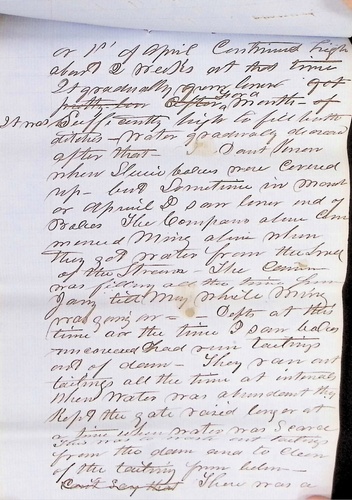 or 1st of April Continued high
about 2 weeks at that time
It gradually grew lower got
pretty low after a month of
It was Sufficiently high to fill both
ditches - Water gradually decreased
after that - I dont know
when Sluice boxes were covered
up - but Sometime in March
or April I saw lower end of
Boxes The Company above Com
menced Mining above when
they got water from the head
of the Stream - The
was filling all the time from
Jany till May while mining
was going on - Defts at this
time or the time I saw boxes
uncovered had run tailings
out of dam - They ran out
tailings all the time at intervals
When water was abundant they
Kept the gate raised longer at
a time when water was Scarce
This was to wash out tailings
from the dam and to clear
of the tailing from below -
Cant Say that There was a